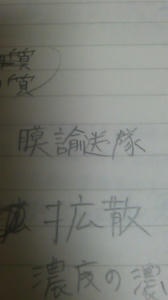 質
質
膜諭送隊
拡散
濃度の濃